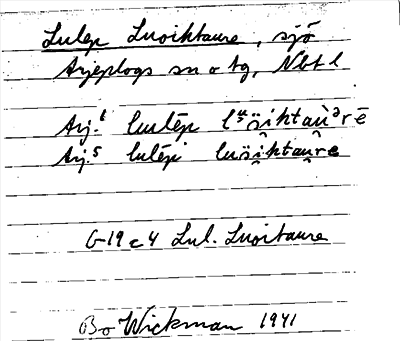 Lulep Luoihtaure, sjö
Arjeplogs sn o tg, Nbt l
Arj. lulēp
Arj.s lulēpi luöi̯htau̯re
G-19 c 4 Lul. Luoitaure
Bo Wickman 1941